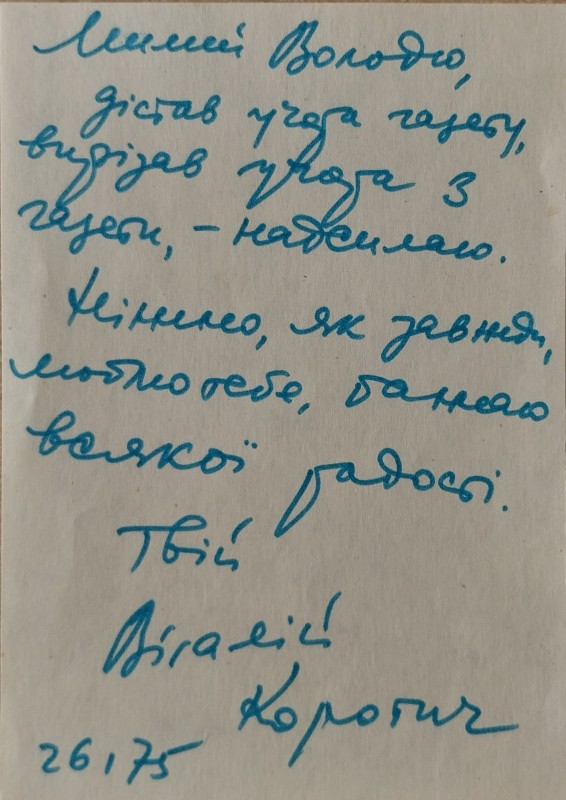 Милий Володю,
дістав учора газету,
вирізав учора з
газети, – надсилаю.
Ніжно, як завжди,
люблю тебе, бажаю
всякої радості.
Твій
Віталій
Коротич
26,75